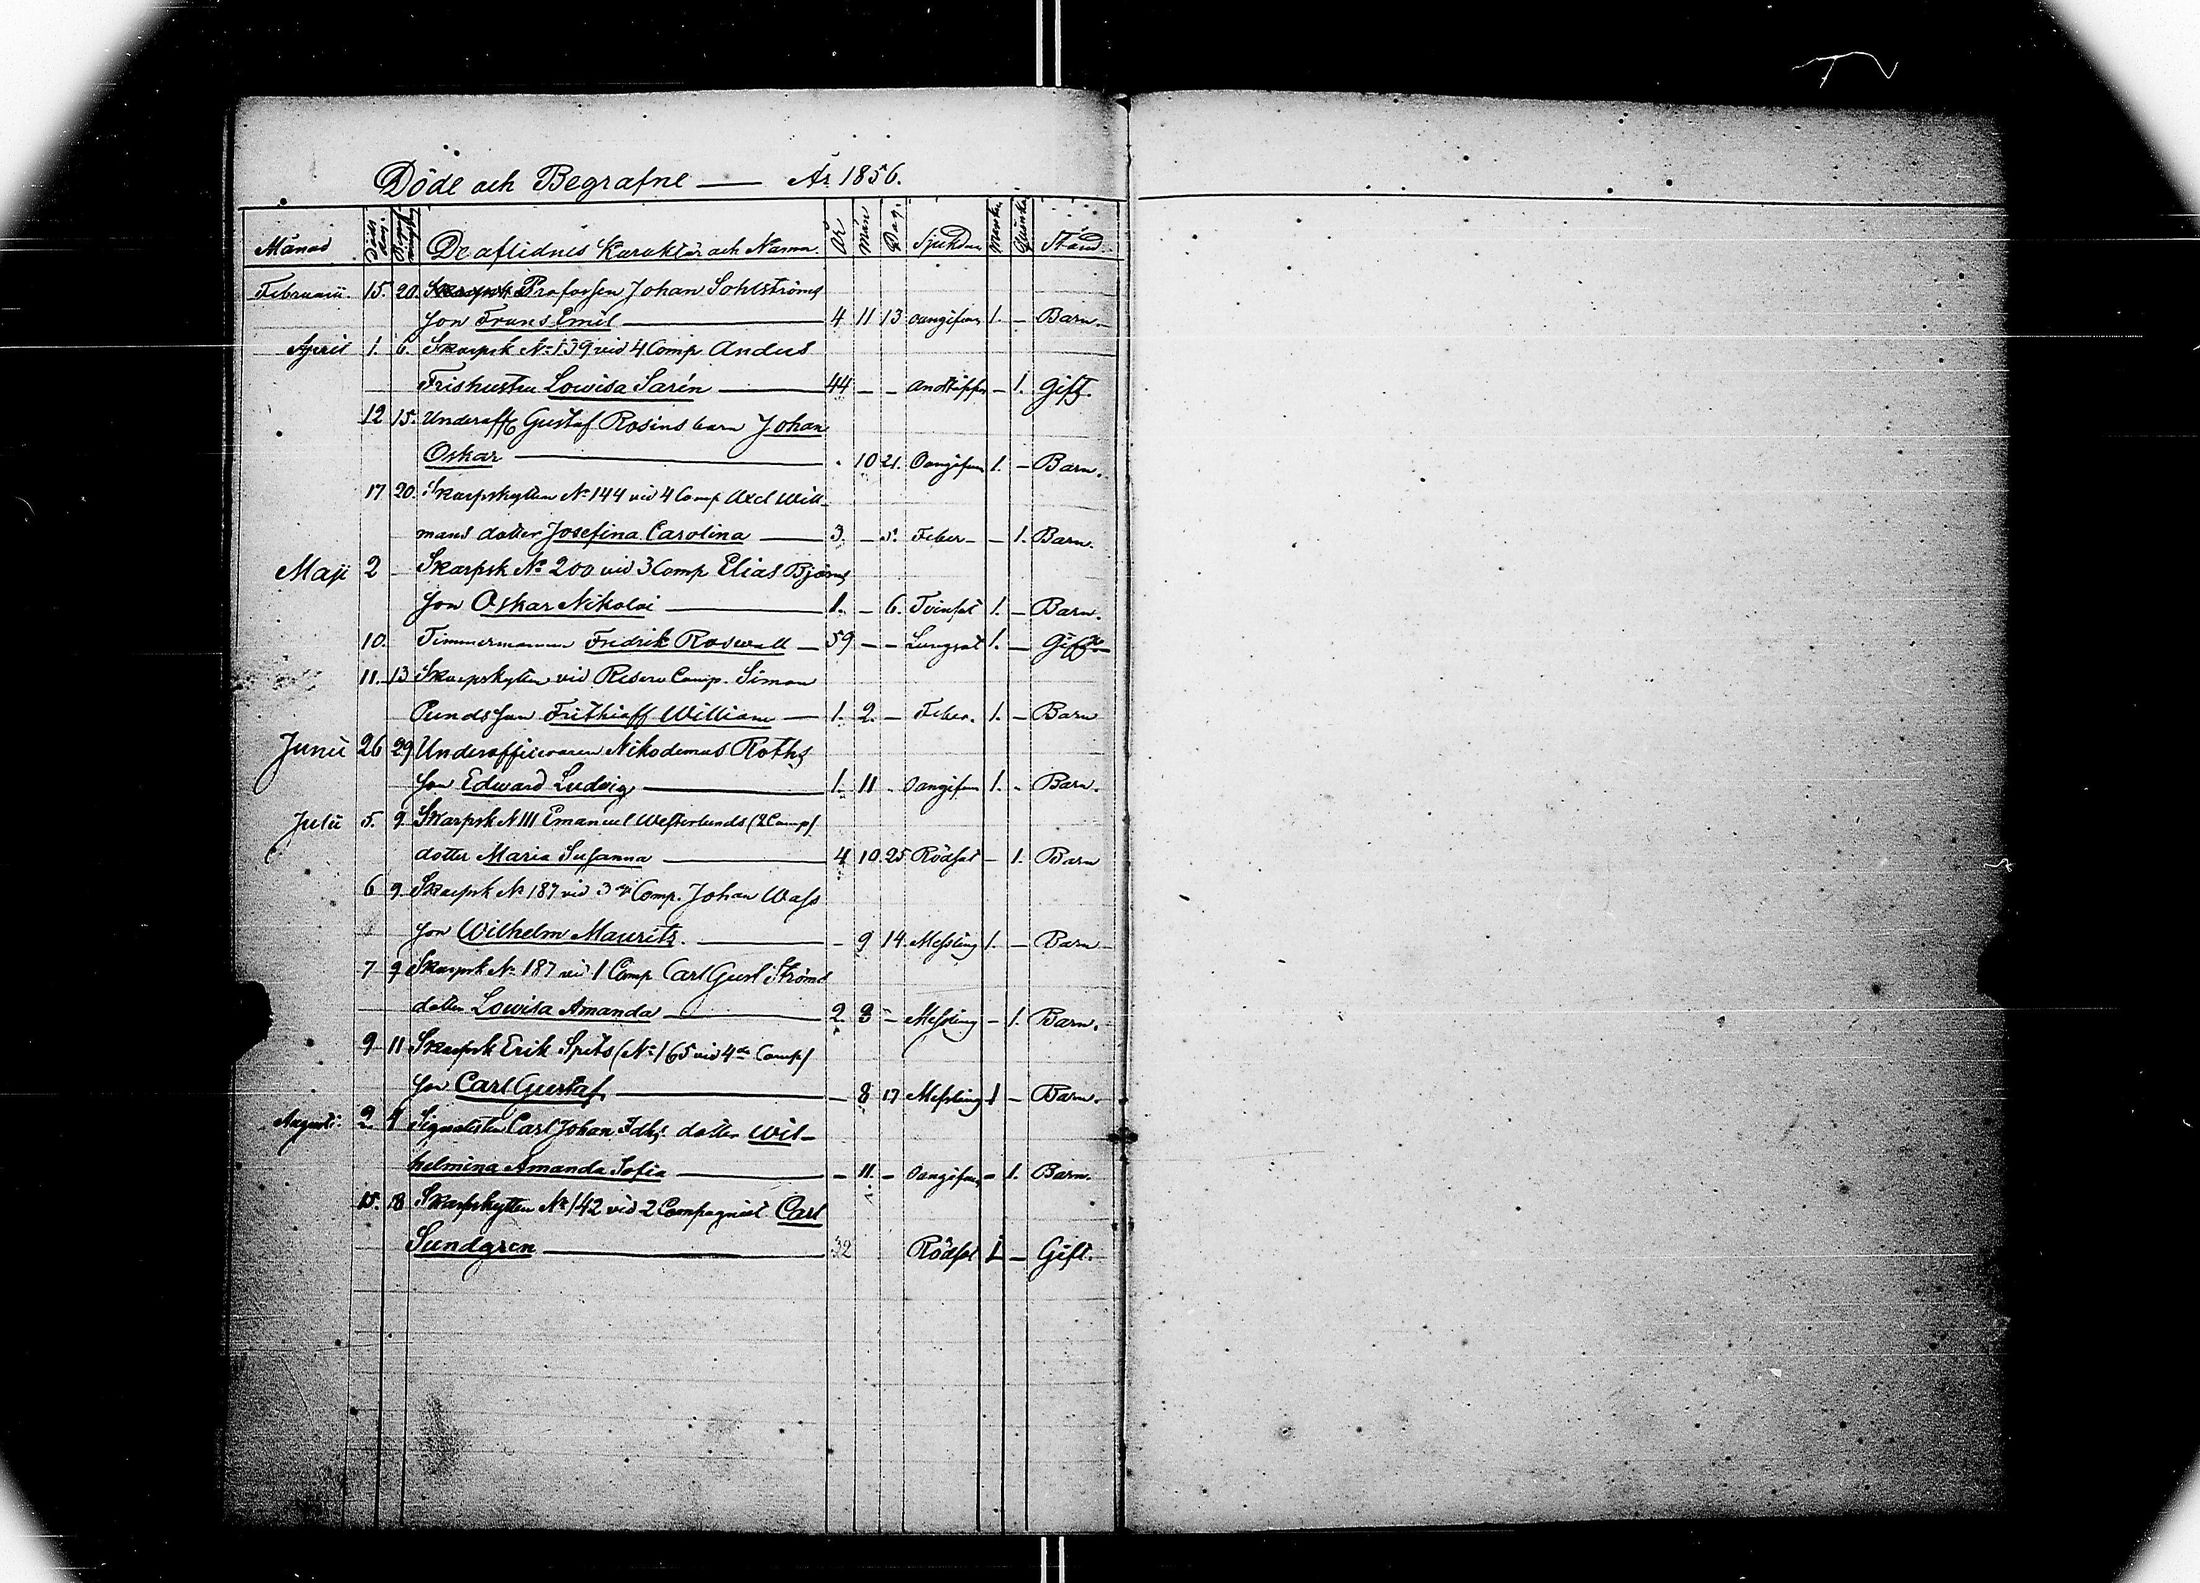 Döde och Begrafne — År 1856.
Månad Döds dag. De aflidnes Karaktär och Namn. År Mån Dag. Sjukdom Mankön Qvinkön Stånd.
Februarii 15. 20. Profossen Johan Sohlströms
son Frans Emil — 4 11 13 oangifven 1. – Barn.
April 1. 6. Skarpsk No 139 vid 4 Comp Anders
Fris hustru Lowisa Sarén — 44 – – andtäppa – 1. Gift.
12 15. Underoff Gustaf Rosins barn Johan
Oskar — . 10 21. Oangifven 1. – Barn.
17 20. Skarpskytten No 144 vid 4 Comp Axel Will-
mans dotter Josefina Carolina — 3. – 5. Feber – – 1. Barn.
Maji 2 – Skarpsk No 200 vid 3 Comp Elias Björns
son Oskar Nikolai — 1. – 6. Tvinsot 1. – Barn.
10. Timmermannen Fredrik Roswall — 59 – – Lungsot 1. – Gift.
11. 13 Skarpskytten vid Reserv Comp. Simon
Punds son Frithioff William — 1. 2. – Feber. 1. – Barn
Junii 26 29 Underofficeraren Nikodemus Roths
son Edward Ludvig — 1. 11 . oangifven 1. . Barn.
Julii 5. 9. Skarpsk N 111 Emanuel Westerlunds (2 Comp)
dotter Maria Susanna — 4 10. 25 Rödsot – 1. Barn
6 9. Skarpsk No 187 vid 3 Comp. Johan Wass
son Wilhelm Mauritz. — – 9 14. Messling 1. – Barn
7 9 Skarpsk No 187 vid 1 Comp Carl Gust Ströms
dotter Lowisa Amanda — 2. 3 – Messling – 1. Barn.
9 11 Skarpsk Erik Spets (No 165 vid 4de Comp)
son Carl Gustaf — – 8 17 Messling 1 – Barn.
Augusti. 2. 4 Signalisten Carl Johan dotter Wil-
helmina Amanda Sofia — – 11. – Oangifven – 1. Barn.
15. 18 Skarpskytten No 142 vid 2 Compagniet Carl
Sundgren — 32 Rödsot 1 – Gift.